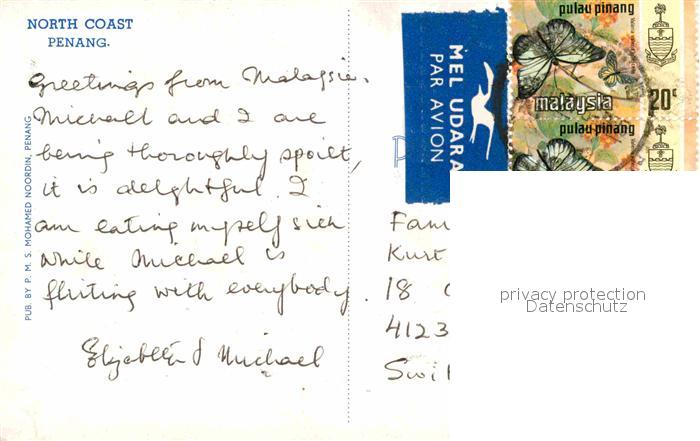 NORTH COAST
PENANG.
Greetings from Malaysia.
Michael and I are
being thoroughly spoilt,
it is delightful. I
am eating myself sick
while Michael is
flirting with everybody.
Elizabeth & Michael
PUB. BY P. M. S. MOHAMED NOORDIN, PENANG
MEL UDARA
PAR AVION
pulau pinang
malaysia
20c
pulau pinang
Fam
Kurt
18
4123
Swi
privacy protection
Datenschutz